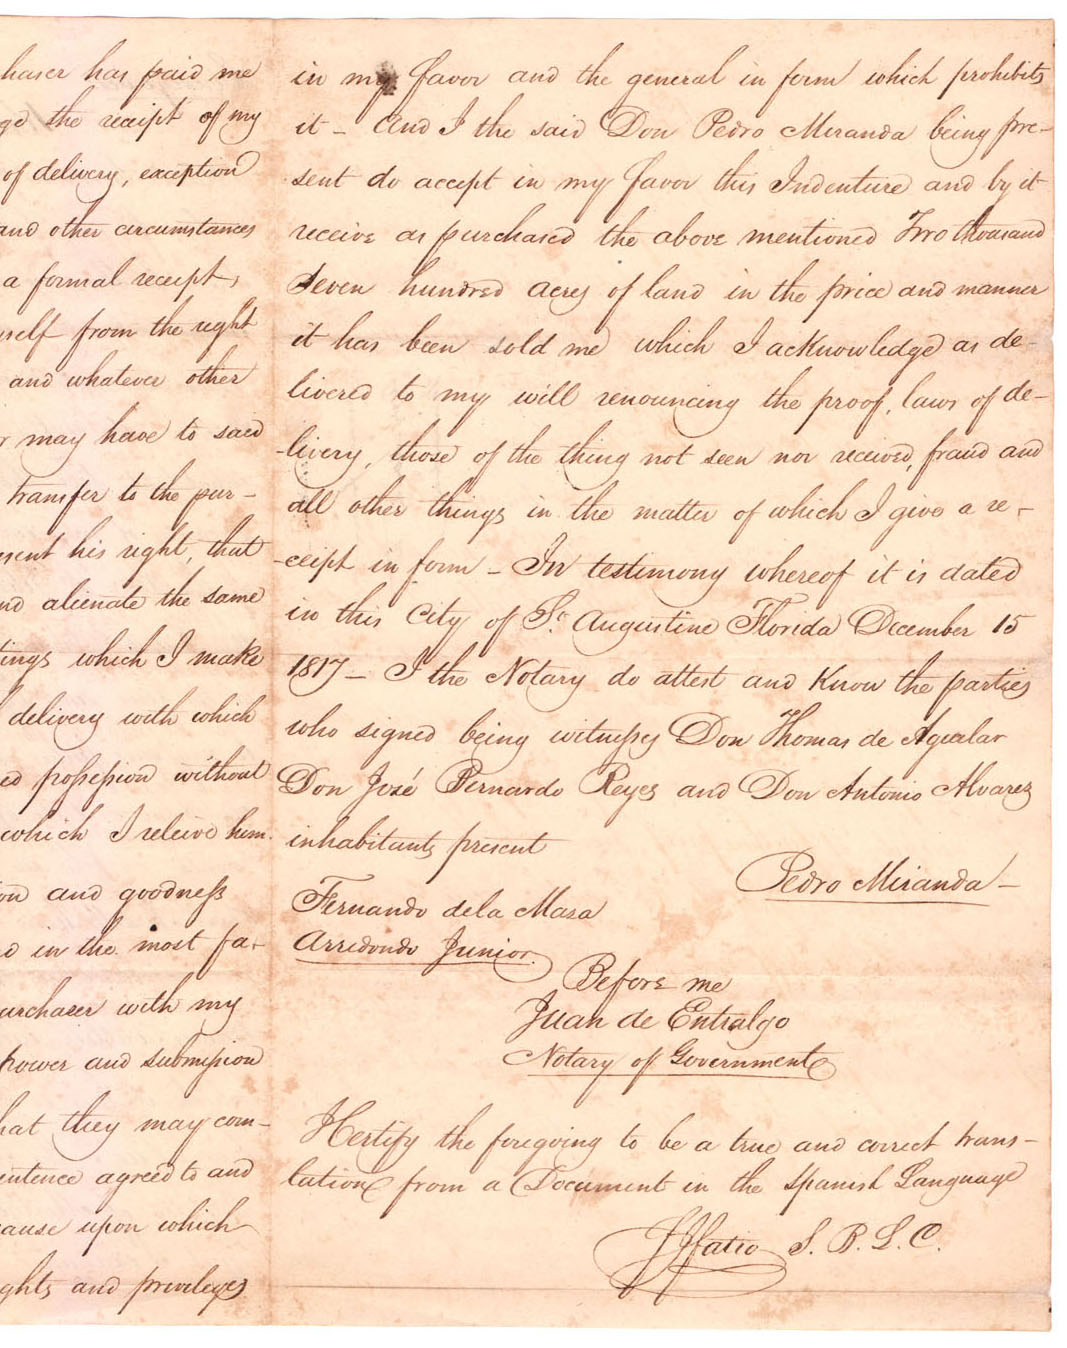 haser has paid me
ge the receipt of my
of delivery, exception
and other circumstances
a formal receipt,
self from the right
and whatever other
r may have to said
transfer to the pur-
sent his right, that
nd alienate the same
tings which I make
delivery with which
ed possession without
which I releive him.
on and goodness
d in the most fa-
urchaser with my
power and submission
hat they may com-
entence agreed to and
cause upon which
ghts and privileges
in my favor and the general in form which prohibits
it - And I the said Don Pedro Miranda being pre-
sent do accept in my favor this Indenture and by it
receive as purchased the above mentioned Two thousand
Seven hundred acres of land in the price and manner
it has been sold me which I acknowledge as de-
livered to my will renouncing the proof, laws of de-
-livery, those of the thing not seen nor received, fraud and
all other things in the matter of which I give a re-
-ceipt in form - In testimony whereof it is dated
in this City of St. Augustine Florida December 15
1817 - I the Notary do attest and Know the parties
who signed being witnesses Don Thomas de Aguilar
Don José Bernardo Reyes and Don Antonio Alvarez
inhabitants present
Pedro Miranda -
Fernando de la Maza
Arredondo Junior.
Before me
Juan de Entralgo
Notary of Government
I Certify the foregoing to be a true and correct trans-
lation from a Document in the Spanish Language
F J Fatio S. B. L. C.